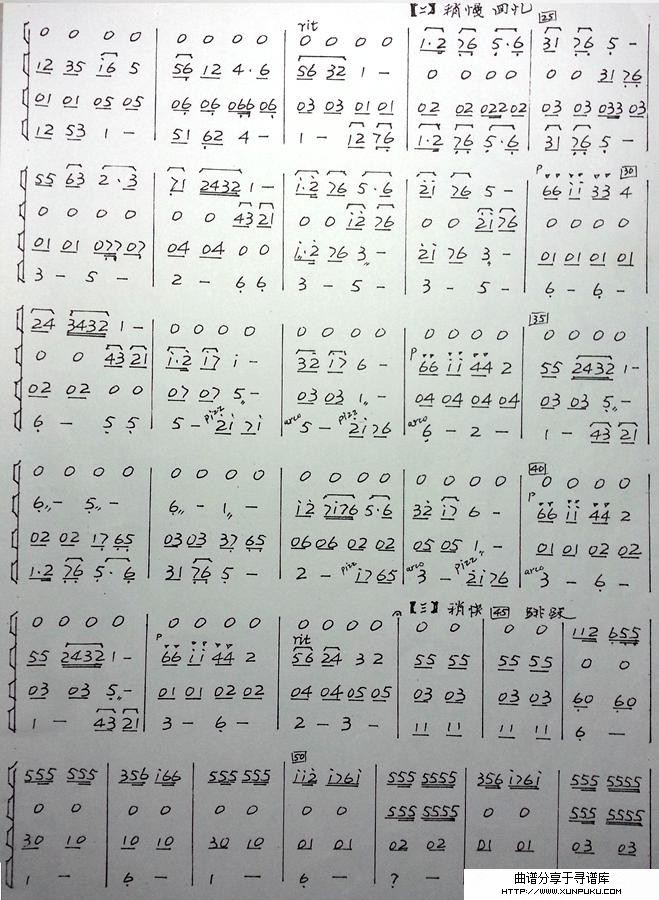 rit 【二】稍慢 回忆 25
0 0 0 0 | 0 0 0 0 | 0 0 0 0 | 1·2 76 5·6 | 31 76 5 -
12 35 i6 5 | 56 12 4·6 | 56 32 1 - | 0 0 0 0 | 0 0 31 76
01 01 05 05 | 06 06 066 06 | 03 03 01 01 | 02 02 022 02 | 03 03 033 03
12 53 1 - | 51 62 4 - | 1 - 12 76 | 1·2 76 5·6 | 31 76 5 -
P 30
55 63 2·3 | 71 2432 1 - | i·2 76 5·6 | 2i 76 5 - | 66 ii 33 4
0 0 0 0 | 0 0 43 21 | 0 0 i2 76 | 0 0 2i 76 | 0 0 0 0
01 01 077 07 | 04 04 0 0 | i·2 76 3 - | 2i 76 3 - | 01 01 01 01
3 - 5 - | 2 - 6 6 | 3 - 5 - | 3 - 5 - | 6 - 6 -
35
24 3432 1 - | 0 0 0 0 | 0 0 0 0 | 0 0 0 0 | 0 0 0 0
0 0 43 21 | i·2 i7 i - | 32 i7 6 - | P 66 ii 44 2 | 55 2432 1 -
02 02 0 0 | 07 07 5 - | 03 03 1 - | 04 04 04 04 | 03 03 5 -
6 - 5 5 | 5 - pizz 2i 7i | arco 5 - pizz 2i 76 | arco 6 - 2 - | 1 - 43 21
40
0 0 0 0 | 0 0 0 0 | 0 0 0 0 | 0 0 0 0 | 0 0 0 0
6 - 5 - | 6 - 1 - | i2 7i76 5·6 | 32 i7 6 - | P 66 ii 44 2
02 02 17 65 | 03 03 37 65 | 06 06 02 02 | 05 05 1 - | 01 01 02 02
1·2 76 5·6 | 31 76 5 - | 2 - pizz i7 65 | arco 3 - pizz 2i 76 | arco 3 - 6 -
【三】稍快 45 跳跃
0 0 0 0 | 0 0 0 0 | 0 0 0 0 | 0 0 | 0 0 | 112 655
55 2432 1 - | P 66 ii 44 2 | rit 56 24 3 2 | 55 55 | 55 55 | 0 0
03 03 5 - | 01 01 02 02 | 04 04 05 05 | 03 03 | 03 03 | 60 60
1 - 43 21 | 3 - 6 - | 2 - 3 - | 11 11 | 11 11 | 6 -
50
555 555 | 356 i66 | 555 555 | ii2 i76i | 555 5555 | 356 i76i | 555 5555
0 0 | 0 0 | 0 0 | 0 0 | 555 5555 | 0 0 | 555 5555
30 10 | 10 10 | 30 10 | 01 01 | 02 02 | 01 01 | 03 03
1 - | 6 - | 1 - | 6 - | 7 -
曲谱分享于寻谱库
HTTP://WWW.XUNPUKU.COM